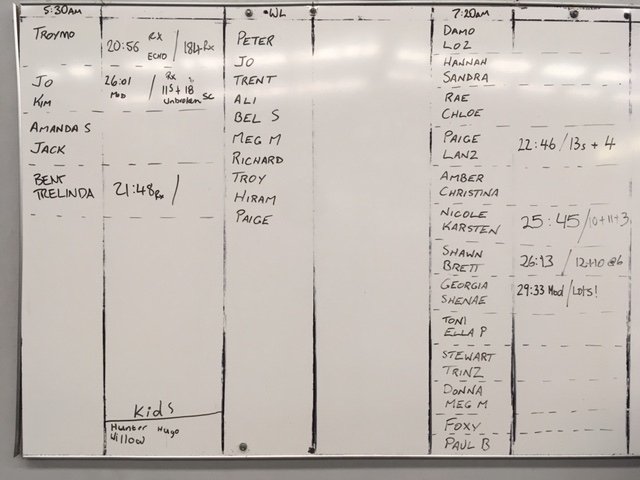 5:30AM
TROYMO
20:56 RX ECHO / 184 Rx
JO
KIM
26:01 MOD / Rx 11s + 18 Unbroken SC
AMANDA S
JACK
BENT
TRELINDA
21:48 Rx /
Kids
Hunter Hugo
Willow
WL
PETER
JO
TRENT
ALI
BEL S
MEG M
RICHARD
TROY
HIRAM
PAIGE
7:20AM
DAMO
LOZ
HANNAH
SANDRA
RAE
CHLOE
PAIGE
LANZ
22:46 / 13s + 4
AMBER
CHRISTINA
NICOLE
KARSTEN
25:45 / 10+11+3
SHAWN
BRETT
26:13 / 12+10 @6
GEORGIA
SHENAE
29:33 Mod / Lots!
TONI
ELLA P
STEWART
TRINZ
DONNA
MEG M
FOXY
PAUL B